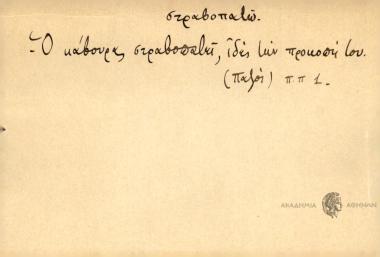 στραβοπατῶ.
Ὁ κάβουρας στραβοπατεῖ, ἰδές τὴν προκοπή του.
(Παξοί) π π 1.
ΑΚΑΔΗΜΙΑ ΑΘΗΝΩΝ